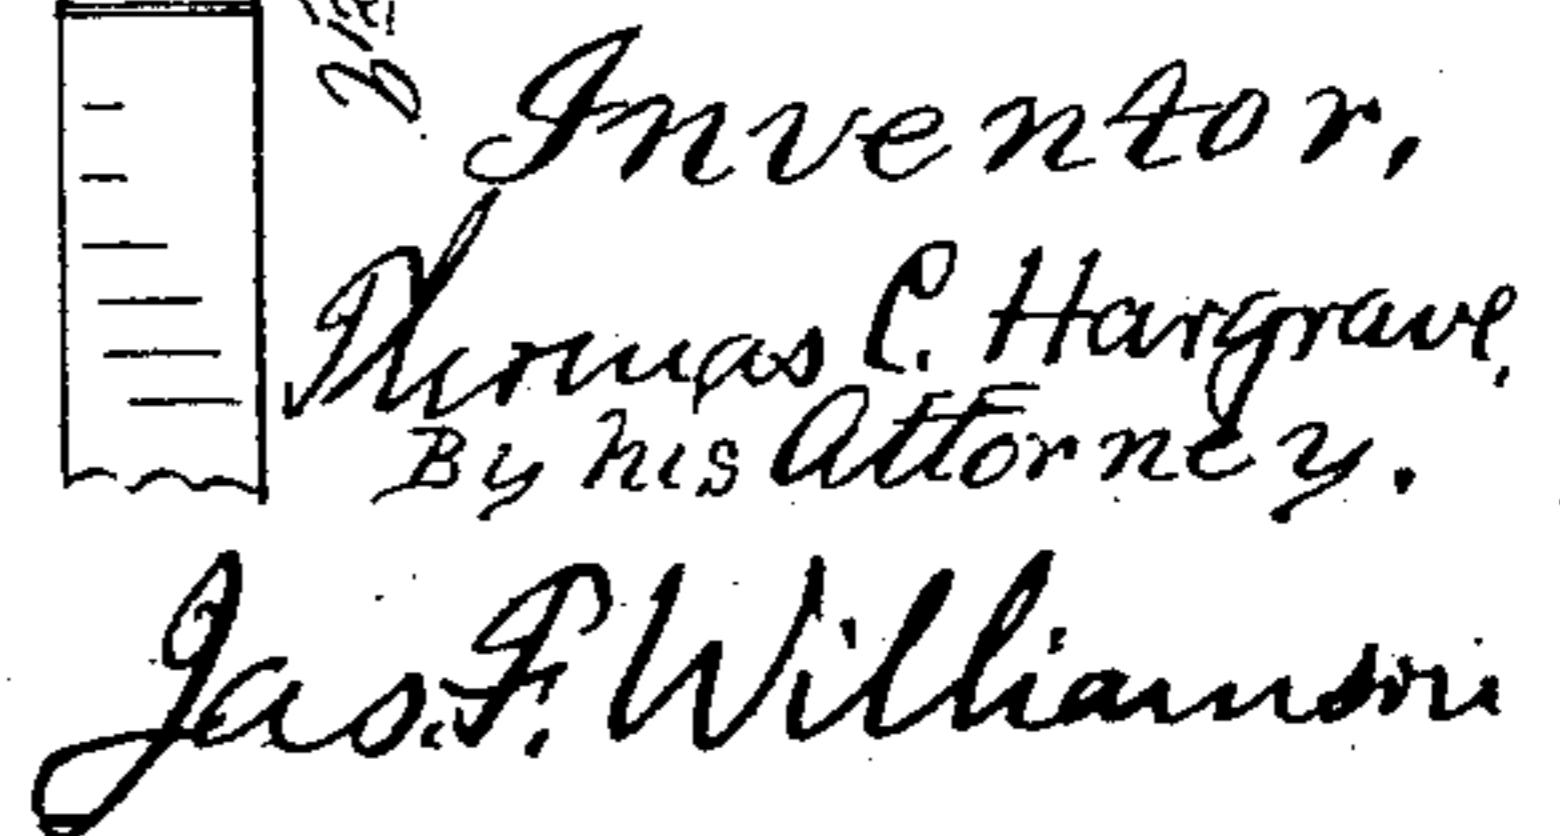 Inventor,
Thomas C. Hargrave,
By his Attorney.
Jas. F. Williamson